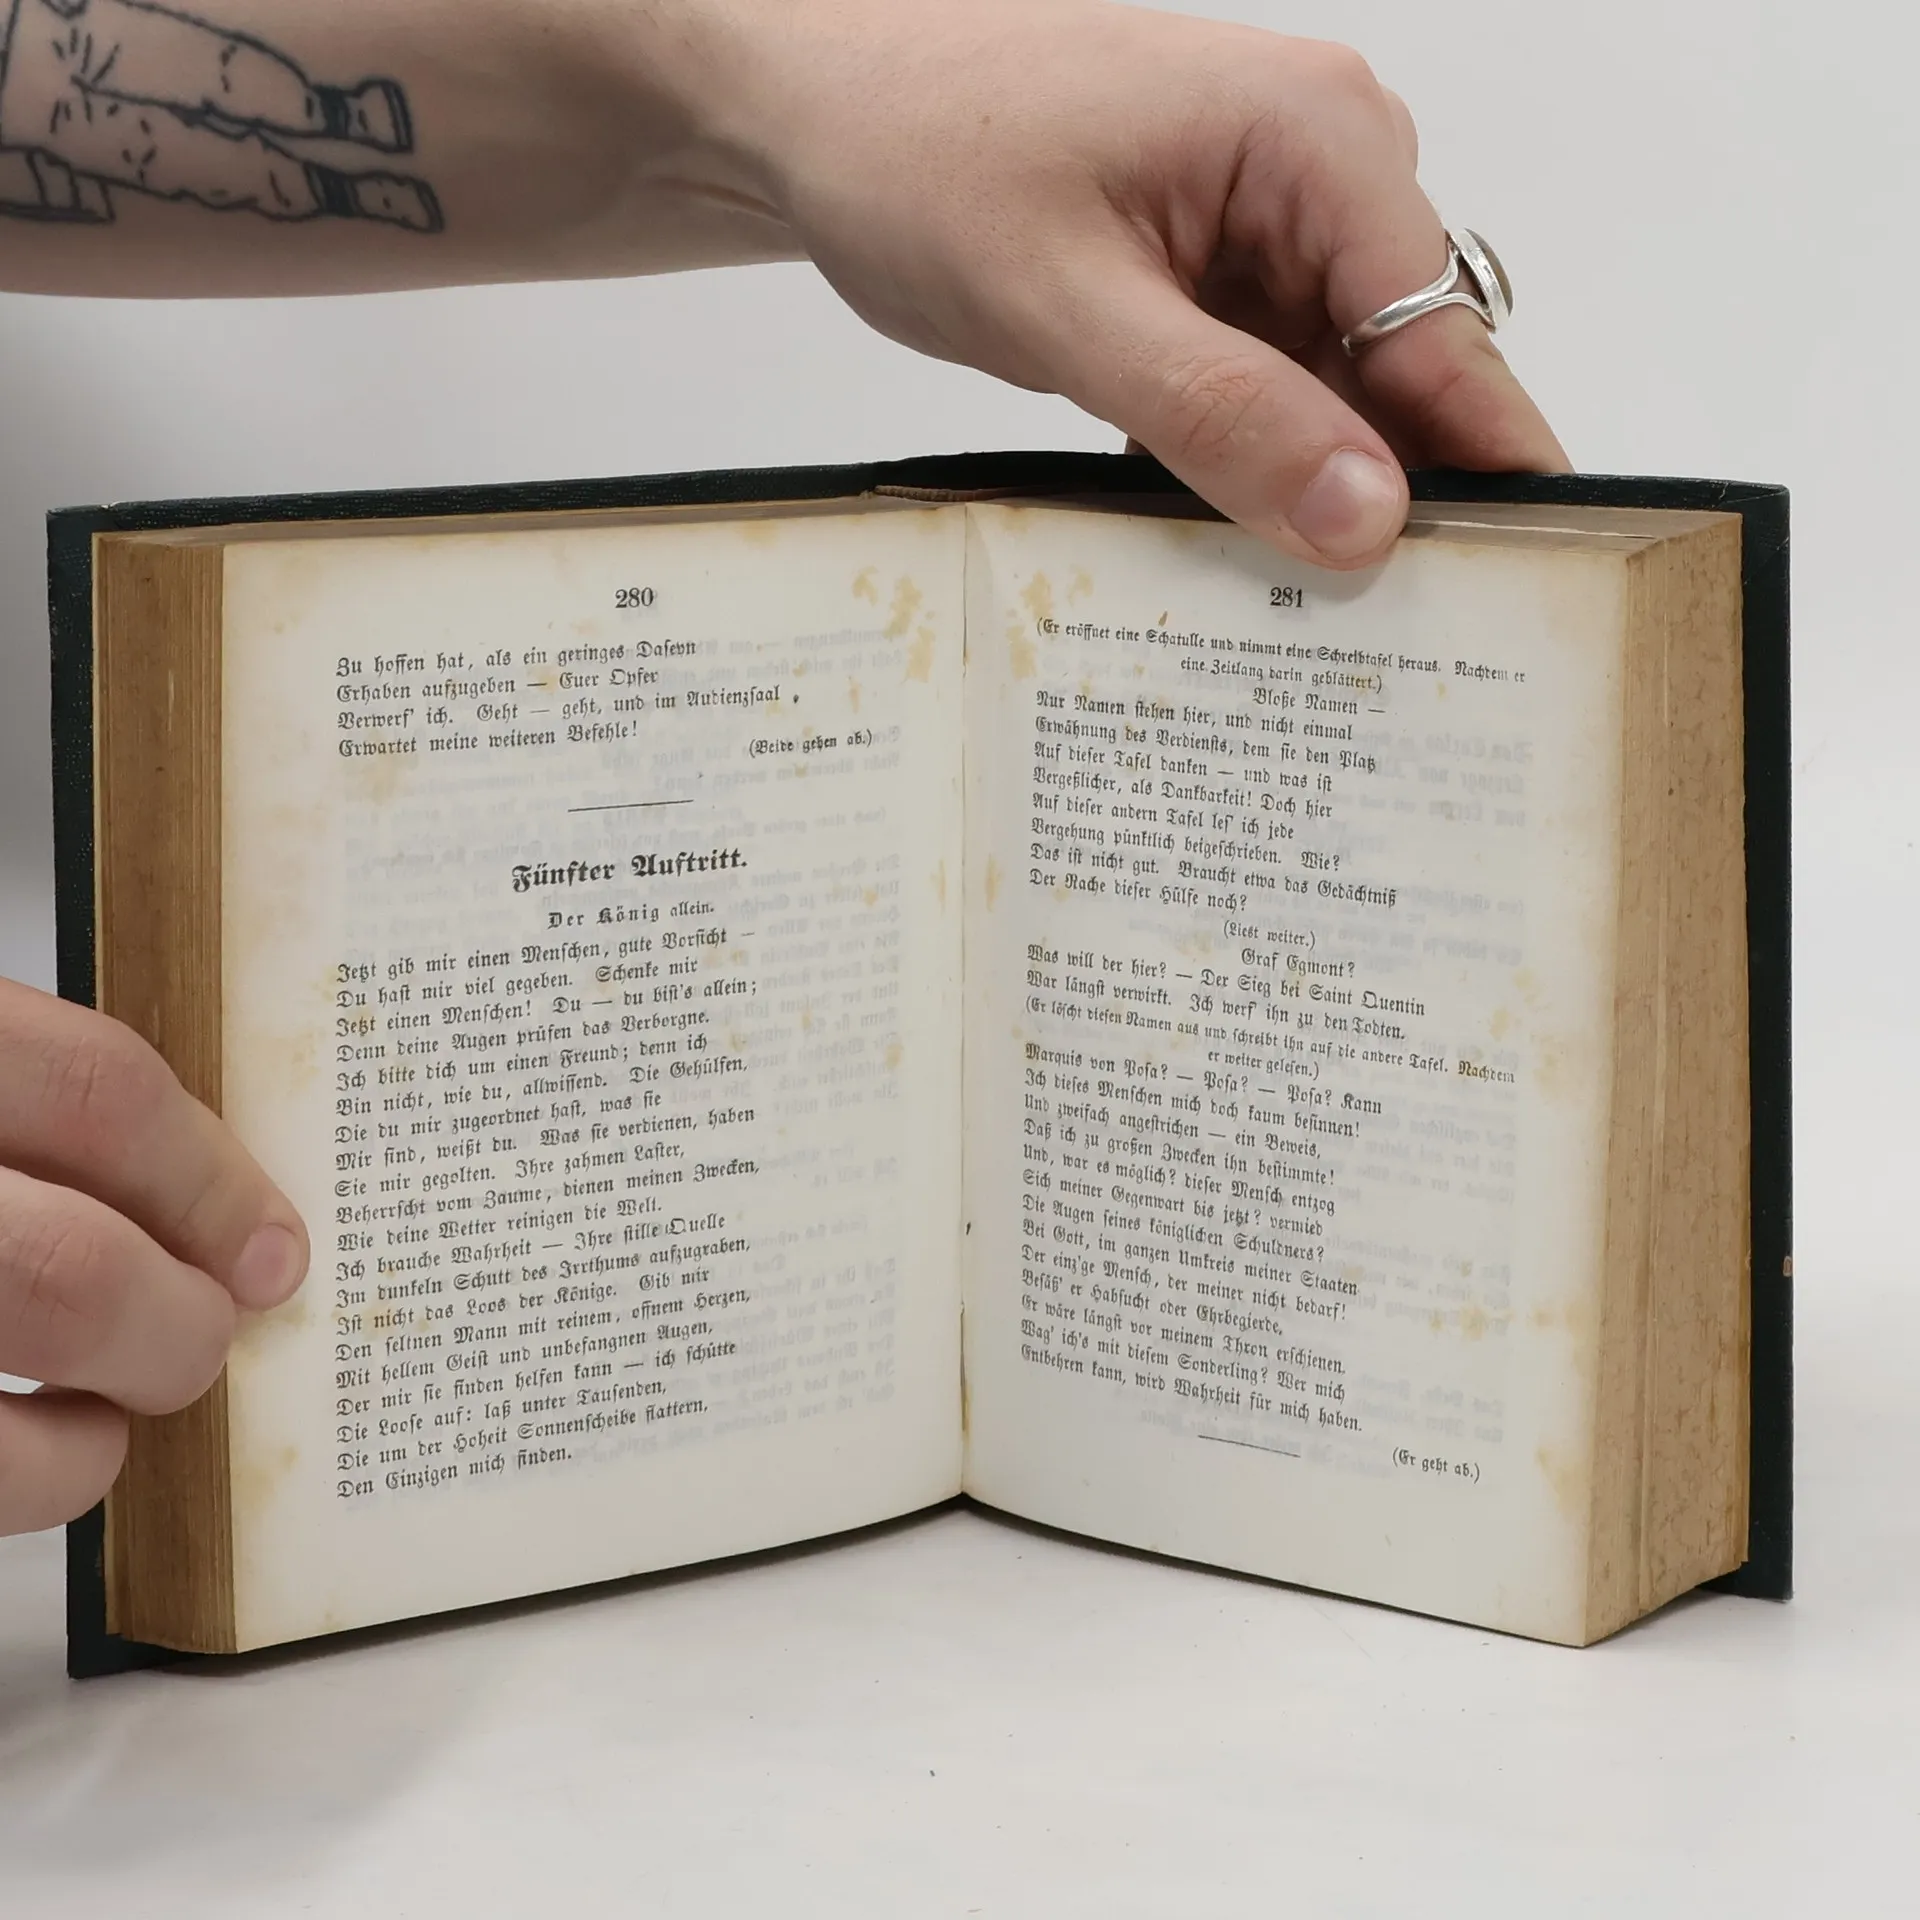 280
Zu hoffen hat, als ein geringes Daseyn
Erhaben aufzugeben — Euer Opfer
Verwerf' ich. Geht — geht, und im Audienzsaal
Erwartet meine weiteren Befehle!
(Beide gehen ab.)
Fünfter Auftritt.
Der König allein.
Jetzt gib mir einen Menschen, gute Vorsicht —
Du hast mir viel gegeben. Schenke mir
Jetzt einen Menschen! Du — du bist's allein;
Denn deine Augen prüfen das Verborgne.
Ich bitte dich um einen Freund; denn ich
Bin nicht, wie du, allwissend. Die Gehülfen,
Die du mir zugeordnet hast, was sie
Mir sind, weißt du. Was sie verdienen, haben
Sie mir gegolten. Ihre zahmen Laster,
Beherrscht vom Zaume, dienen meinen Zwecken,
Wie deine Wetter reinigen die Welt.
Ich brauche Wahrheit — Ihre stille Quelle
Im dunkeln Schutt des Irrthums aufzugraben,
Ist nicht das Loos der Könige. Gib mir
Den seltnen Mann mit reinem, offnem Herzen,
Mit hellem Geist und unbefangnen Augen,
Der mir sie finden helfen kann — ich schütte
Die Loose auf: laß unter Tausenden,
Die um der Hoheit Sonnenscheibe flattern,
Den Einzigen mich finden.
281
(Er eröffnet eine Schatulle und nimmt eine Schreibtafel heraus. Nachdem er
eine Zeitlang darin geblättert.)
Bloße Namen —
Nur Namen stehen hier, und nicht einmal
Erwähnung des Verdiensts, dem sie den Platz
Auf dieser Tafel danken — und was ist
Vergeßlicher, als Dankbarkeit! Doch hier
Auf dieser andern Tafel les' ich jede
Vergehung pünktlich beigeschrieben. Wie?
Das ist nicht gut. Braucht etwa das Gedächtniß
Der Rache dieser Hülfe noch?
(Liest weiter.)
Graf Egmont?
Was will der hier? — Der Sieg bei Saint Quentin
War längst verwirkt. Ich werf' ihn zu den Todten.
(Er löscht diesen Namen aus und schreibt ihn auf die andere Tafel. Nachdem
er weiter gelesen.)
Marquis von Posa? — Posa? — Posa? Kann
Ich dieses Menschen mich doch kaum besinnen!
Und zweifach angestrichen — ein Beweis,
Daß ich zu großen Zwecken ihn bestimmte!
Und, war es möglich? dieser Mensch entzog
Sich meiner Gegenwart bis jetzt? vermied
Die Augen seines königlichen Schuldners?
Bei Gott, im ganzen Umkreis meiner Staaten
Der einz'ge Mensch, der meiner nicht bedarf!
Besäß' er Habsucht oder Ehrbegierde,
Er wäre längst vor meinem Thron erschienen.
Wag' ich's mit diesem Sonderling? Wer mich
Entbehren kann, wird Wahrheit für mich haben.
(Er geht ab.)